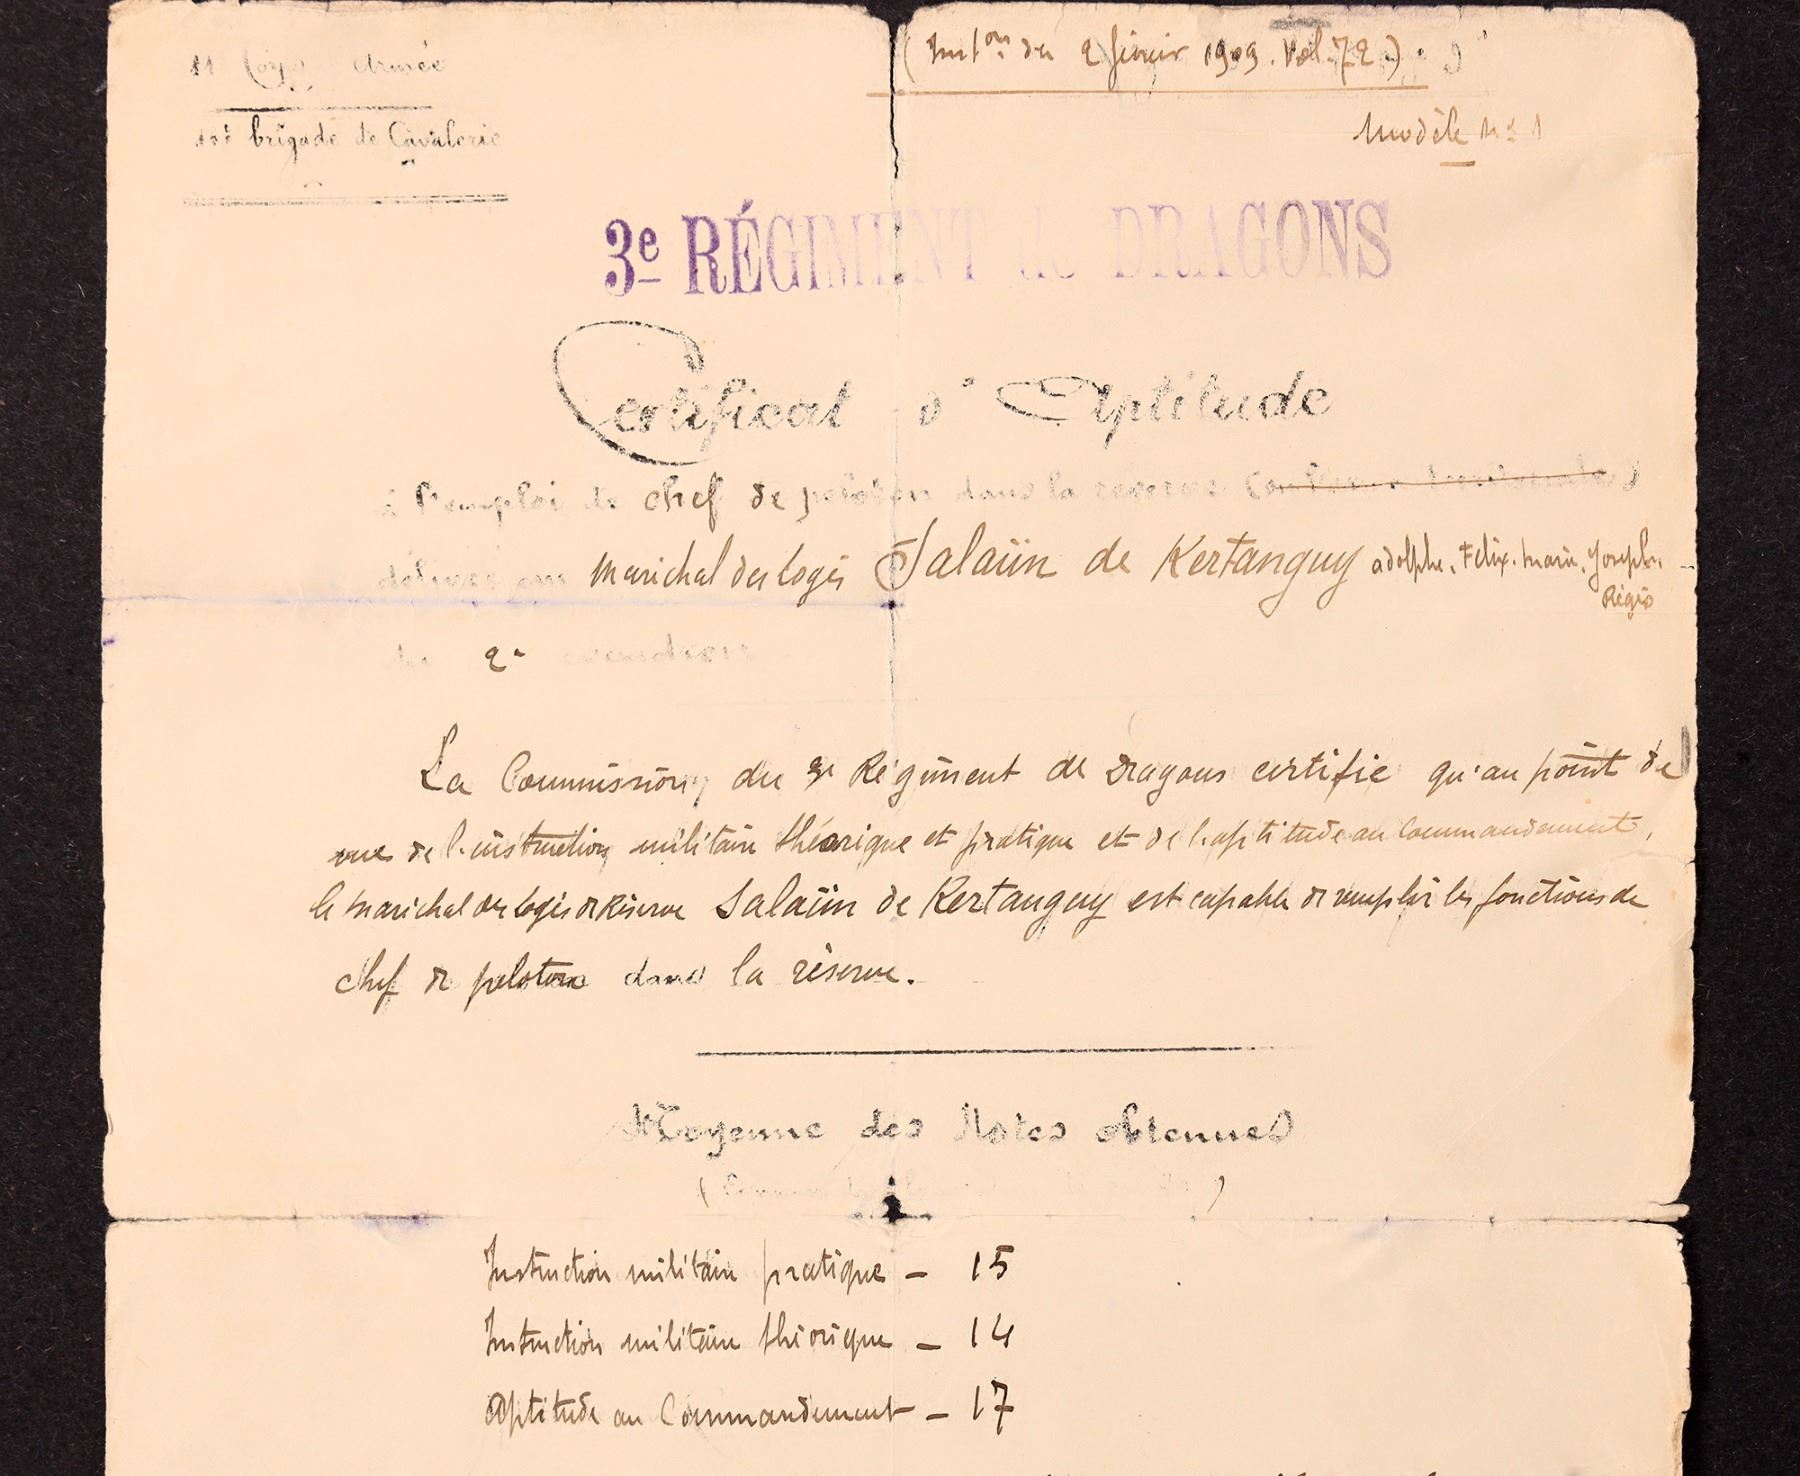 11 Corps Armée
brigade de Cavalerie
(Inston du 2 février 1909. Vol. 72)
Modèle No 1
3e RÉGIMENT de DRAGONS
Certificat d'Aptitude
à l'emploi de chef de peloton dans la réserve
délivré au Marichal des logis Salaün de Kertanguy adolphe. Felix. Marie. Joseph.
Régis
2e
La Commission du 3e Régiment de Dragons certifie qu'au point de
vue de l'instruction militaire théorique et pratique et de l'aptitude au Commandement,
le Marichal des logis de Réserve Salaün de Kertanguy est capable de remplir les fonctions de
chef de peloton dans la réserve.
Moyenne des Notes obtenues
Instruction militaire pratique – 15
Instruction militaire théorique – 14
Aptitude au Commandement – 17